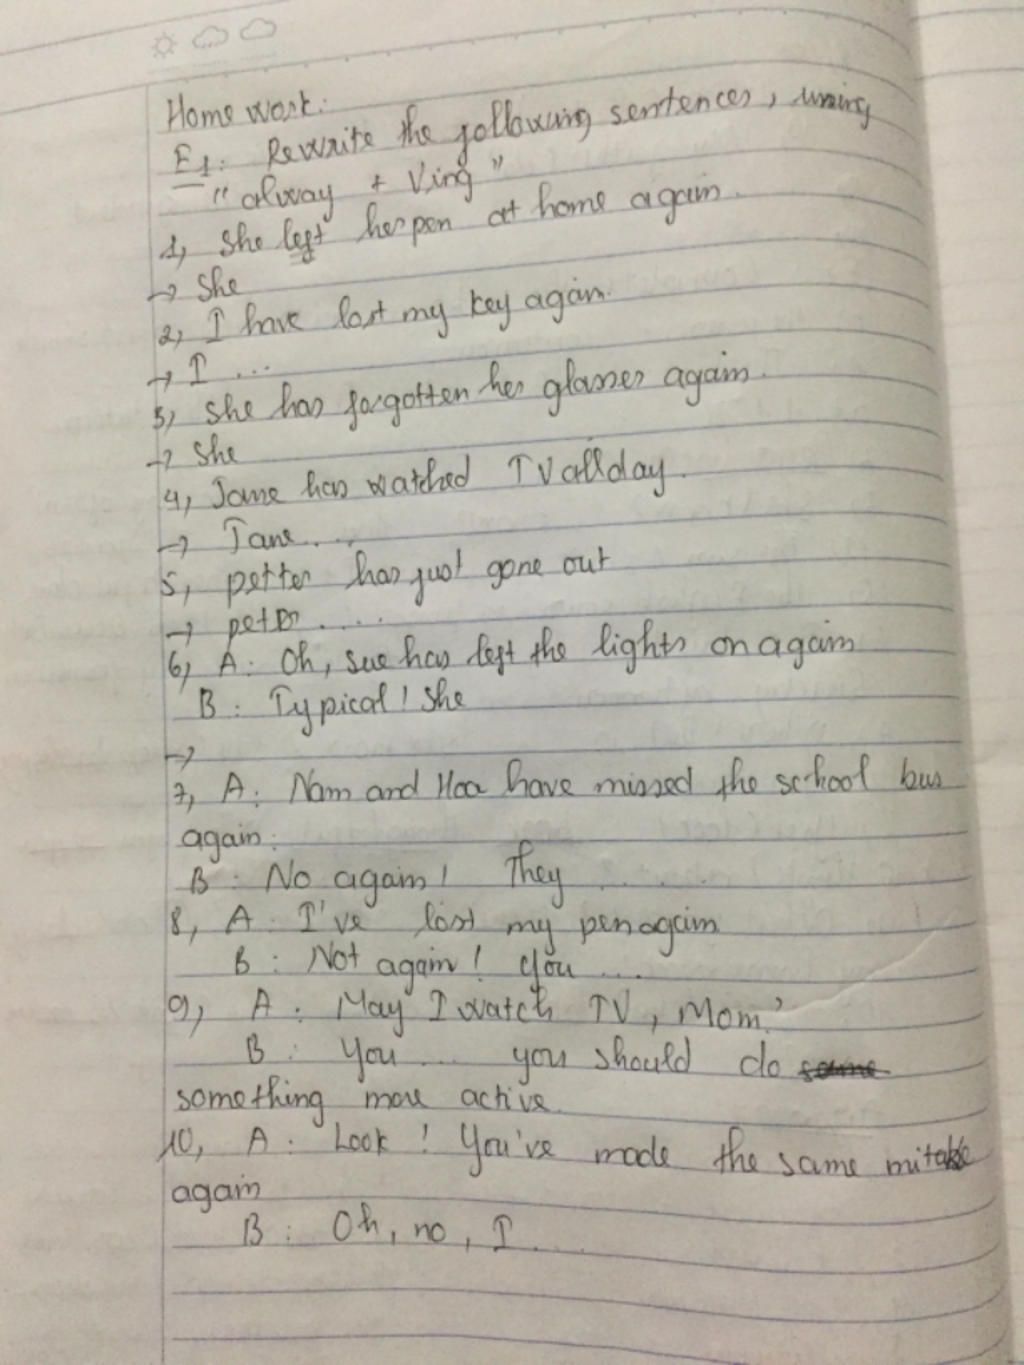 Home work:
E1: Rewrite the following sentences, using
"alway + Ving"
1, She left her pen at home again.
→ She
2, I have lost my key again.
→ I ...
3, She has forgotten her glasses again.
→ She
4, Jane has watched TV all day.
→ Jane ...
5, petter has just gone out
→ peter ....
6, A: Oh, sue has left the lights on again
B: Typical! She
→
7, A: Nam and Hoa have missed the school bus
again:
B: No again! They ....
8, A: I've lost my pen again
B: Not again! You ...
9, A: May I watch TV, Mom?
B: You ... you should do some
something more active.
10, A: Look! You've made the same mitake
again
B: Oh, no, I ...